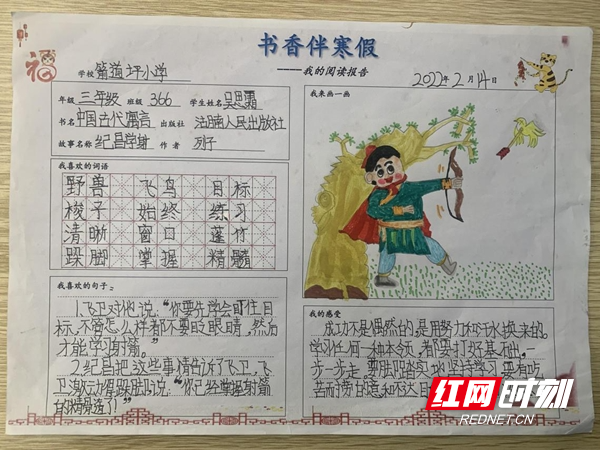 书香伴寒假
——我的阅读报告
学校 箭道坪小学
2022年2月14日
年级 三年级 班级 366 学生姓名 吴思霜
书名 中国古代寓言 出版社 湖南人民出版社
故事名称 纪昌学射 作者 列子
我喜欢的词语
野兽 飞鸟 目标
梭子 始终 练习
清晰 窗口 蓬竹
跺脚 掌握 精髓
我喜欢的句子:
1.飞卫对他说:“你要先学会盯住目
标,不管怎么样都不要眨眼睛,然后
才能学习射箭。”
2.纪昌把这些事情告诉了飞卫,飞
卫激动得跺脚说:“你已经掌握射箭
的精髓了!”
我来画一画
我的感受
成功不是偶然的,是用努力和汗水换来的。
学习任何一种本领,都要打好基础,一
步一步走,要脚踏实地坚持学习,要有吃
苦而持
福
红网时刻
REDNET.CN